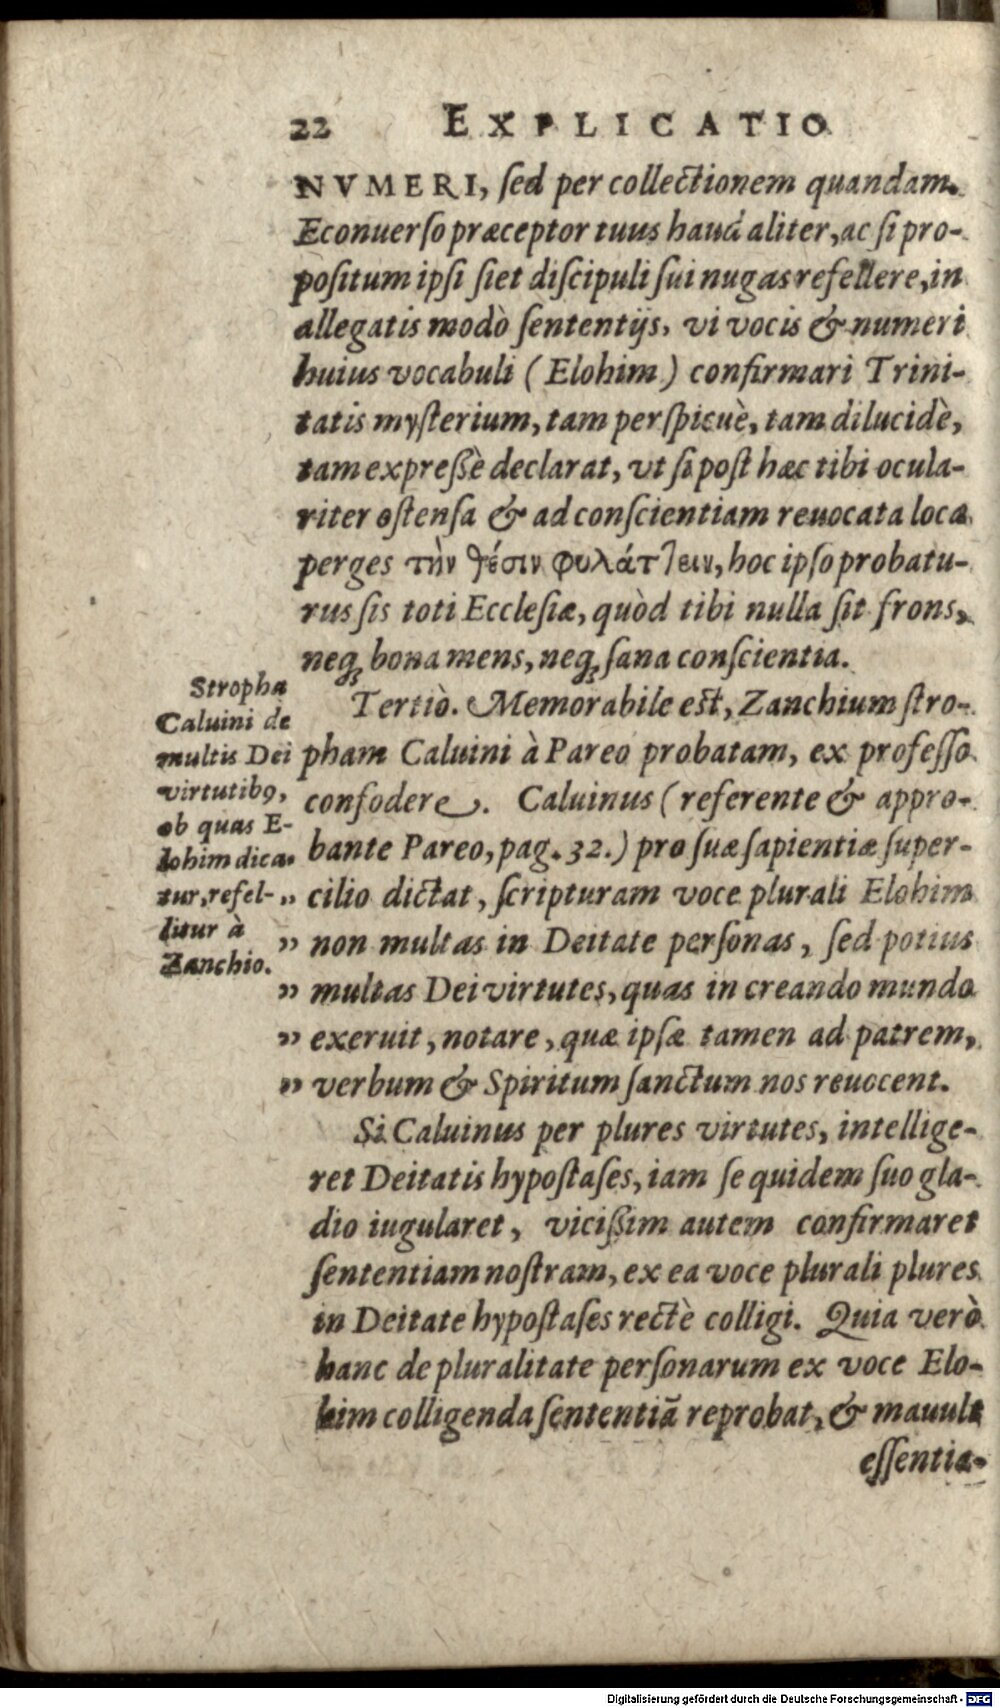 22 EXPLICATIO
NVMERI, ſed per collectionem quandam.
Econuerſo præceptor tuus haud aliter, ac ſi pro-
poſitum ipſi ſiet diſcipuli ſui nugas refellere, in
allegatis modò ſententijs, vi vocis & numeri
huius vocabuli (Elohim) confirmari Trini-
tatis myſterium, tam perſpicuè, tam dilucidè,
tam expreßè declarat, vt ſi poſt hæc tibi ocula-
riter oſtenſa & ad conſcientiam reuocata loca
perges τὴν θέσιν φυλάττειν, hoc ipſo probatu-
rus ſis toti Eccleſiæ, quòd tibi nulla ſit frons,
neq; bona mens, neq; ſana conſcientia.
Tertiò. Memorabile eſt, Zanchium ſtro-
pham Caluini à Pareo probatam, ex profeſſo
confodere. Caluinus (referente & appro-
bante Pareo, pag. 32.) pro ſuæ ſapientiæ ſuper-
cilio dictat, ſcripturam voce plurali Elohim
non multas in Deitate perſonas, ſed potius
multas Dei virtutes, quas in creando mundo
exeruit, notare, quæ ipſæ tamen ad patrem,
verbum & Spiritum ſanctum nos reuocent.
Stropha
Caluini de
multis Dei
virtutibꝰ,
ob quas E-
lohim dica-
tur, refel-
litur à
Zanchio.
Si Caluinus per plures virtutes, intellige-
ret Deitatis hypoſtaſes, iam ſe quidem ſuo gla-
dio iugularet, vicißim autem confirmaret
ſententiam noſtram, ex ea voce plurali plures
in Deitate hypoſtaſes rectè colligi. Quia verò
hanc de pluralitate perſonarum ex voce Elo-
him colligenda ſententiã reprobat, & mauult
eſſentia-
Digitalisierung gefördert durch die Deutsche Forschungsgemeinschaft - DFG